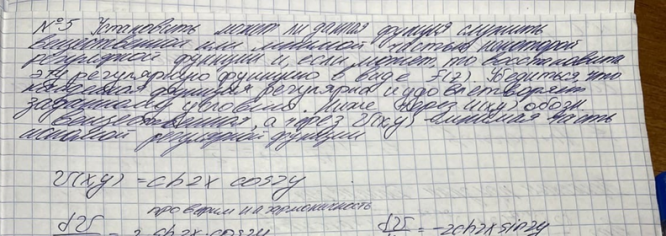 №5 Установить может ли данная функция служить
вещественной или мнимой частью некоторой
регулярной функции и, если может, то восстановить
эту регулярную функцию в виде F(z). Убедиться, что
найденная функция регулярна и удовлетворяет
заданному условию. Ниже через u(x,y) обозн
вещественная, а через V(x,y) - мнимая часть
искомой регулярной функции
V(x,y) = ch2x cos2y
проверим на гармоничность
dV = 2 ch2x cos2y dV = -2ch2x sin2y